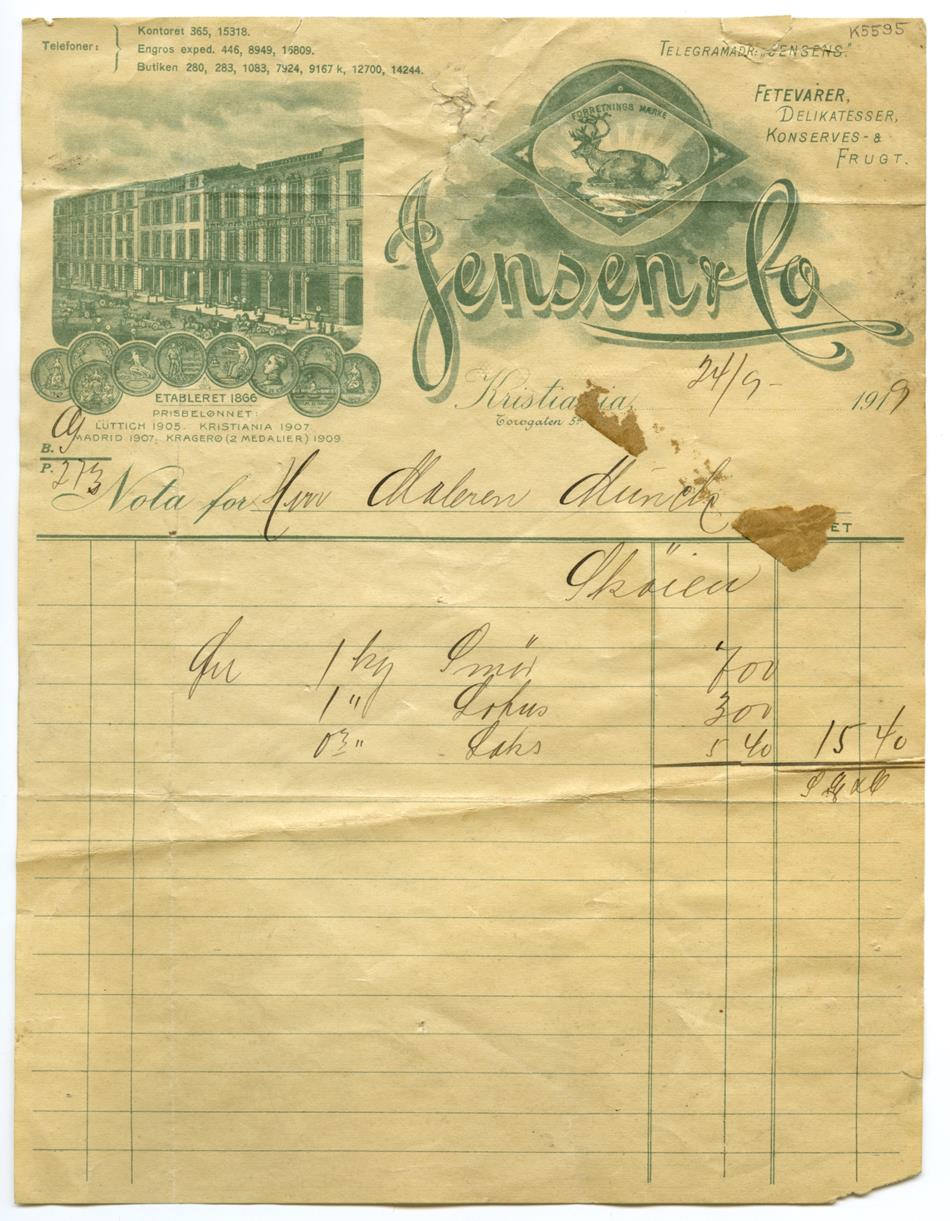 K5595
Telefoner:
Kontoret 365, 15318.
Engros exped. 446, 8949, 16809.
Butiken 280, 283, 1083, 7924, 9167 k, 12700, 14244.
TELEGRAMADR: „JENSENS."
FETEVARER,
DELIKATESSER,
KONSERVES- &
FRUGT.
FORRETNINGS MÆRKE
Jensen & Co
ETABLERET 1866
PRISBELØNNET:
LÜTTICH 1905. KRISTIANIA 1907.
MADRID 1907. KRAGERØ (2 MEDALIER) 1909.
Kristiania, 24/9- 1919
Torvgaten 5
B.
P. 273
Nota for Herr Maleren Munch
ET
Sköien
1 kg Smör 7 00
1 " 3 00
0¾ " Laks 5 40 15 40